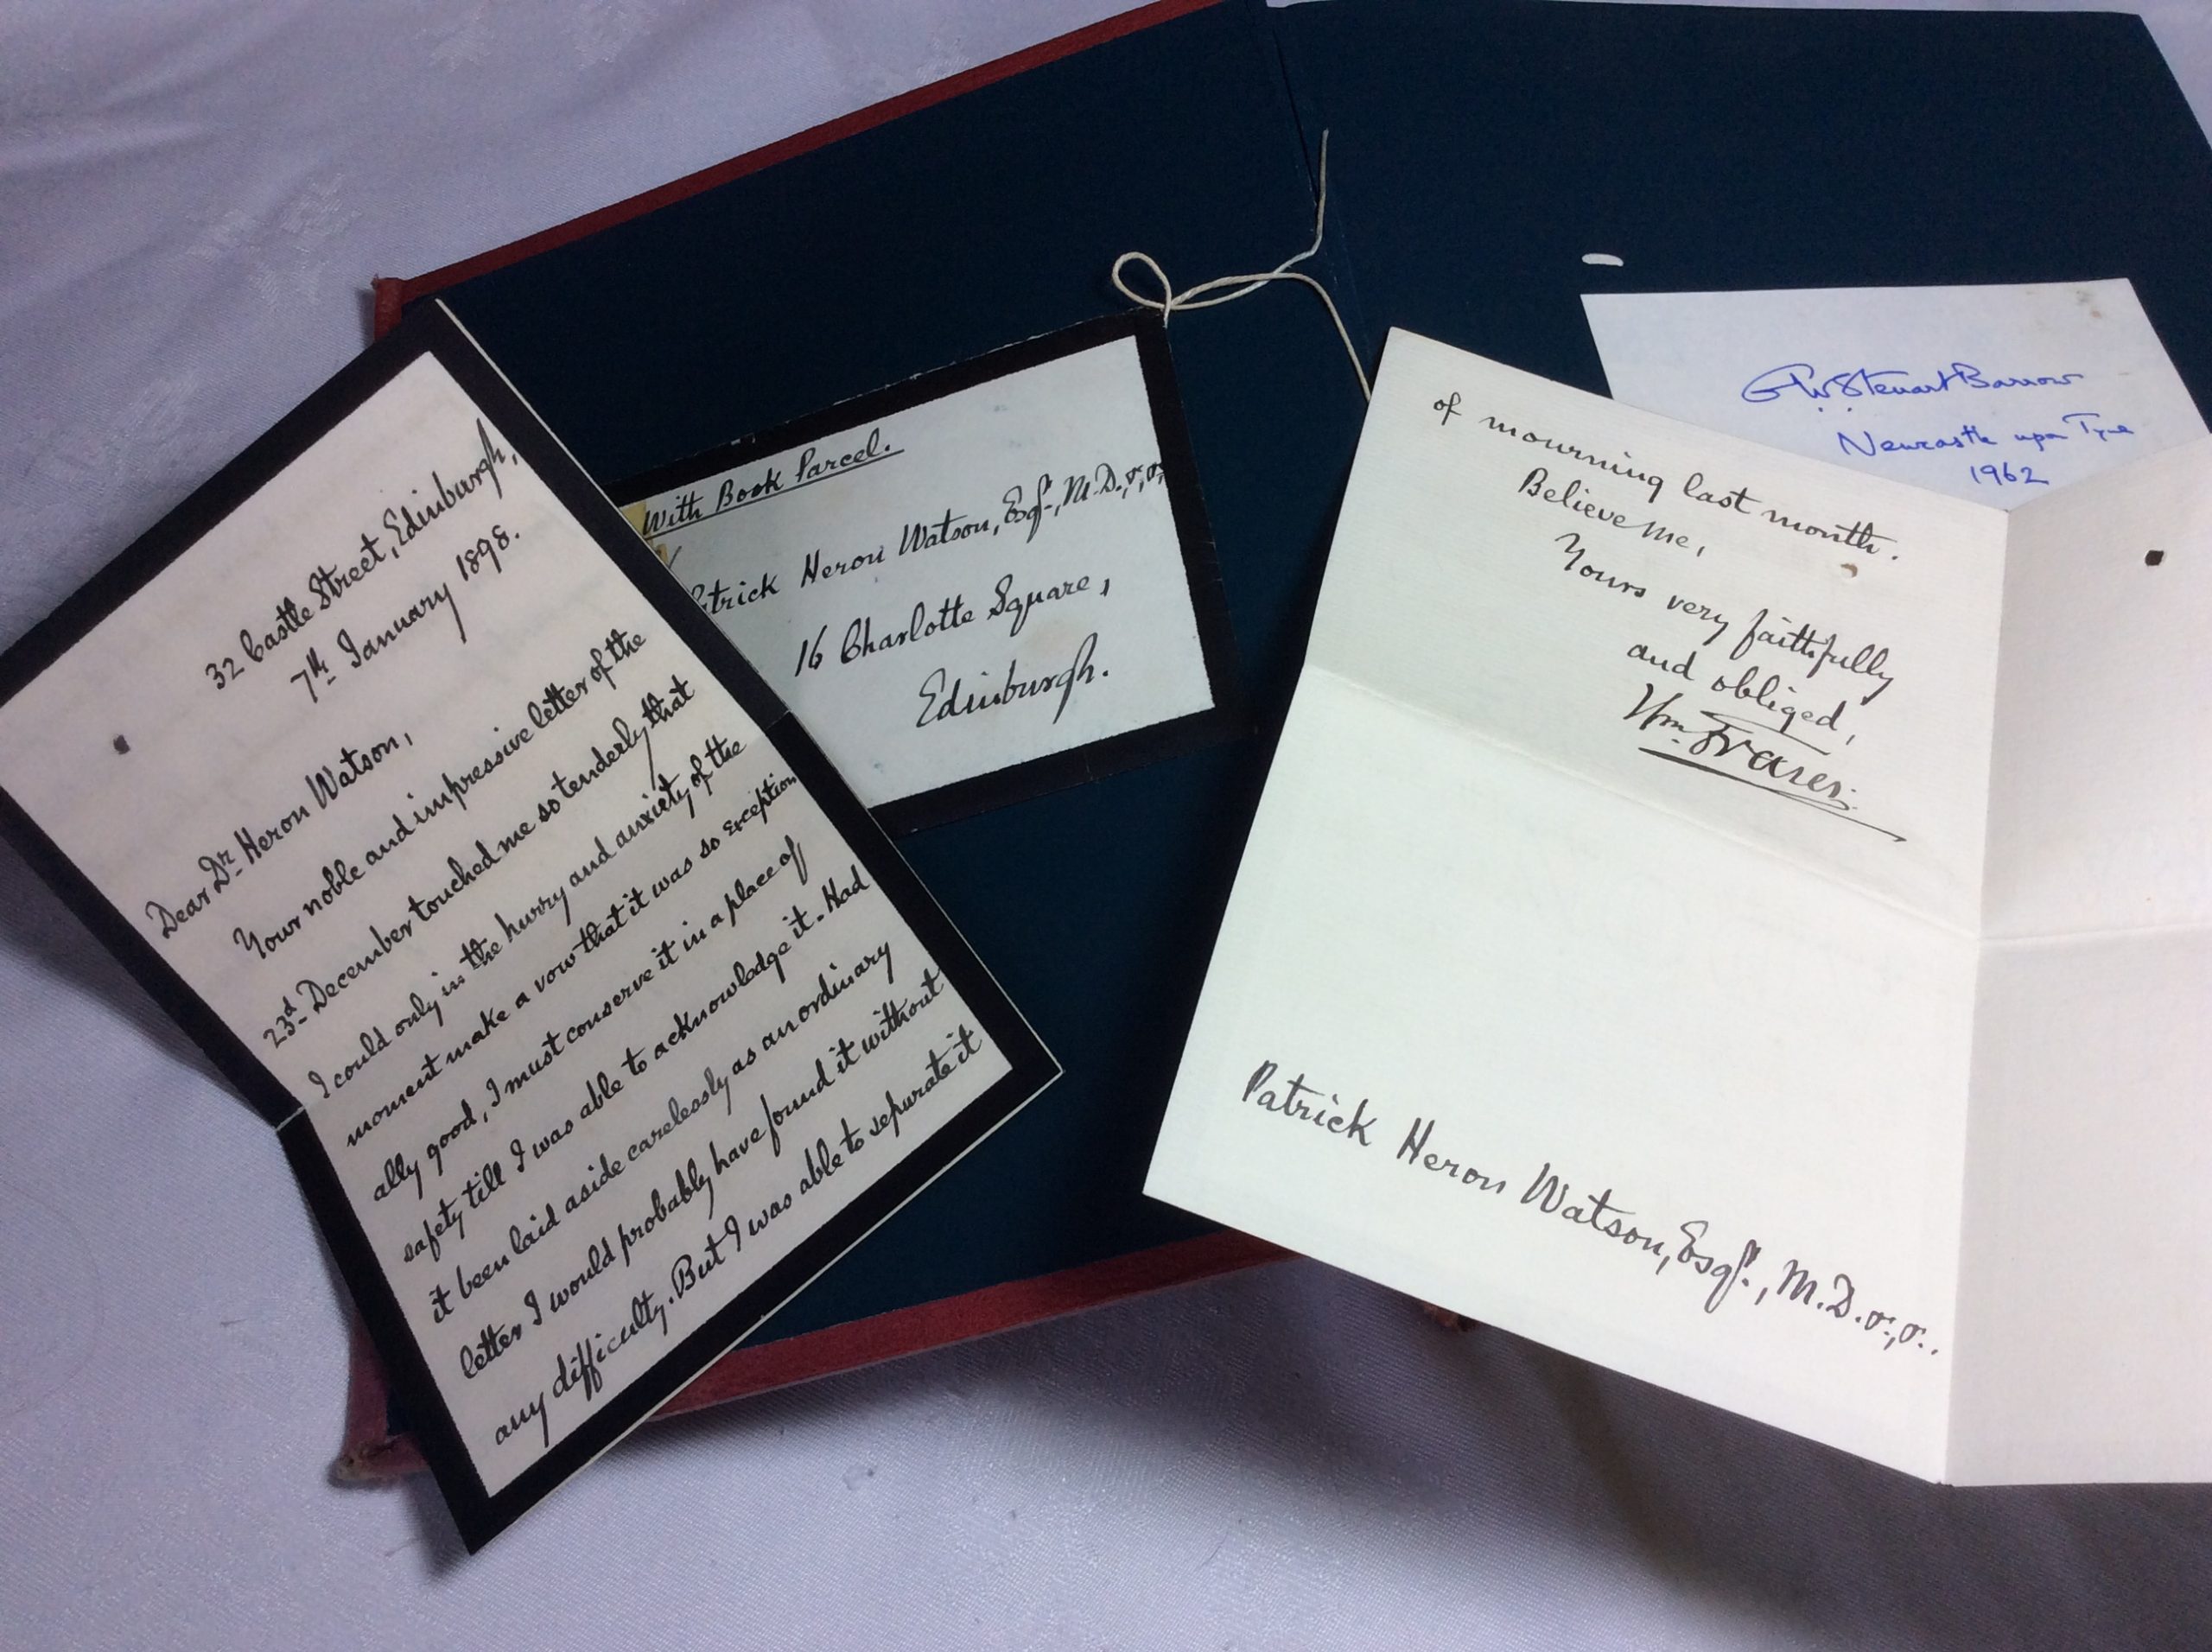 32 Castle Street, Edinburgh,
7th January 1898.
Dear Dr. Heron Watson,
Your noble and impressive letter of the
23rd December touched me so tenderly that
I could only in the hurry and anxiety of the
moment make a vow that it was so exception
ally good, I must conserve it in a place of
safety till I was able to acknowledge it. Had
it been laid aside carelessly as an ordinary
letter I would probably have found it without
any difficulty. But I was able to separate it
With Book Parcel.
Patrick Heron Watson, Esqr., M.D., &, &,
16 Charlotte Square,
Edinburgh.
of mourning last month.
Believe me,
Yours very faithfully
and obliged,
Wm. Fraser.
Patrick Heron Watson, Esqr., M.D. &, &.
G W Steuart Barrow
Newcastle upon Tyne
1962